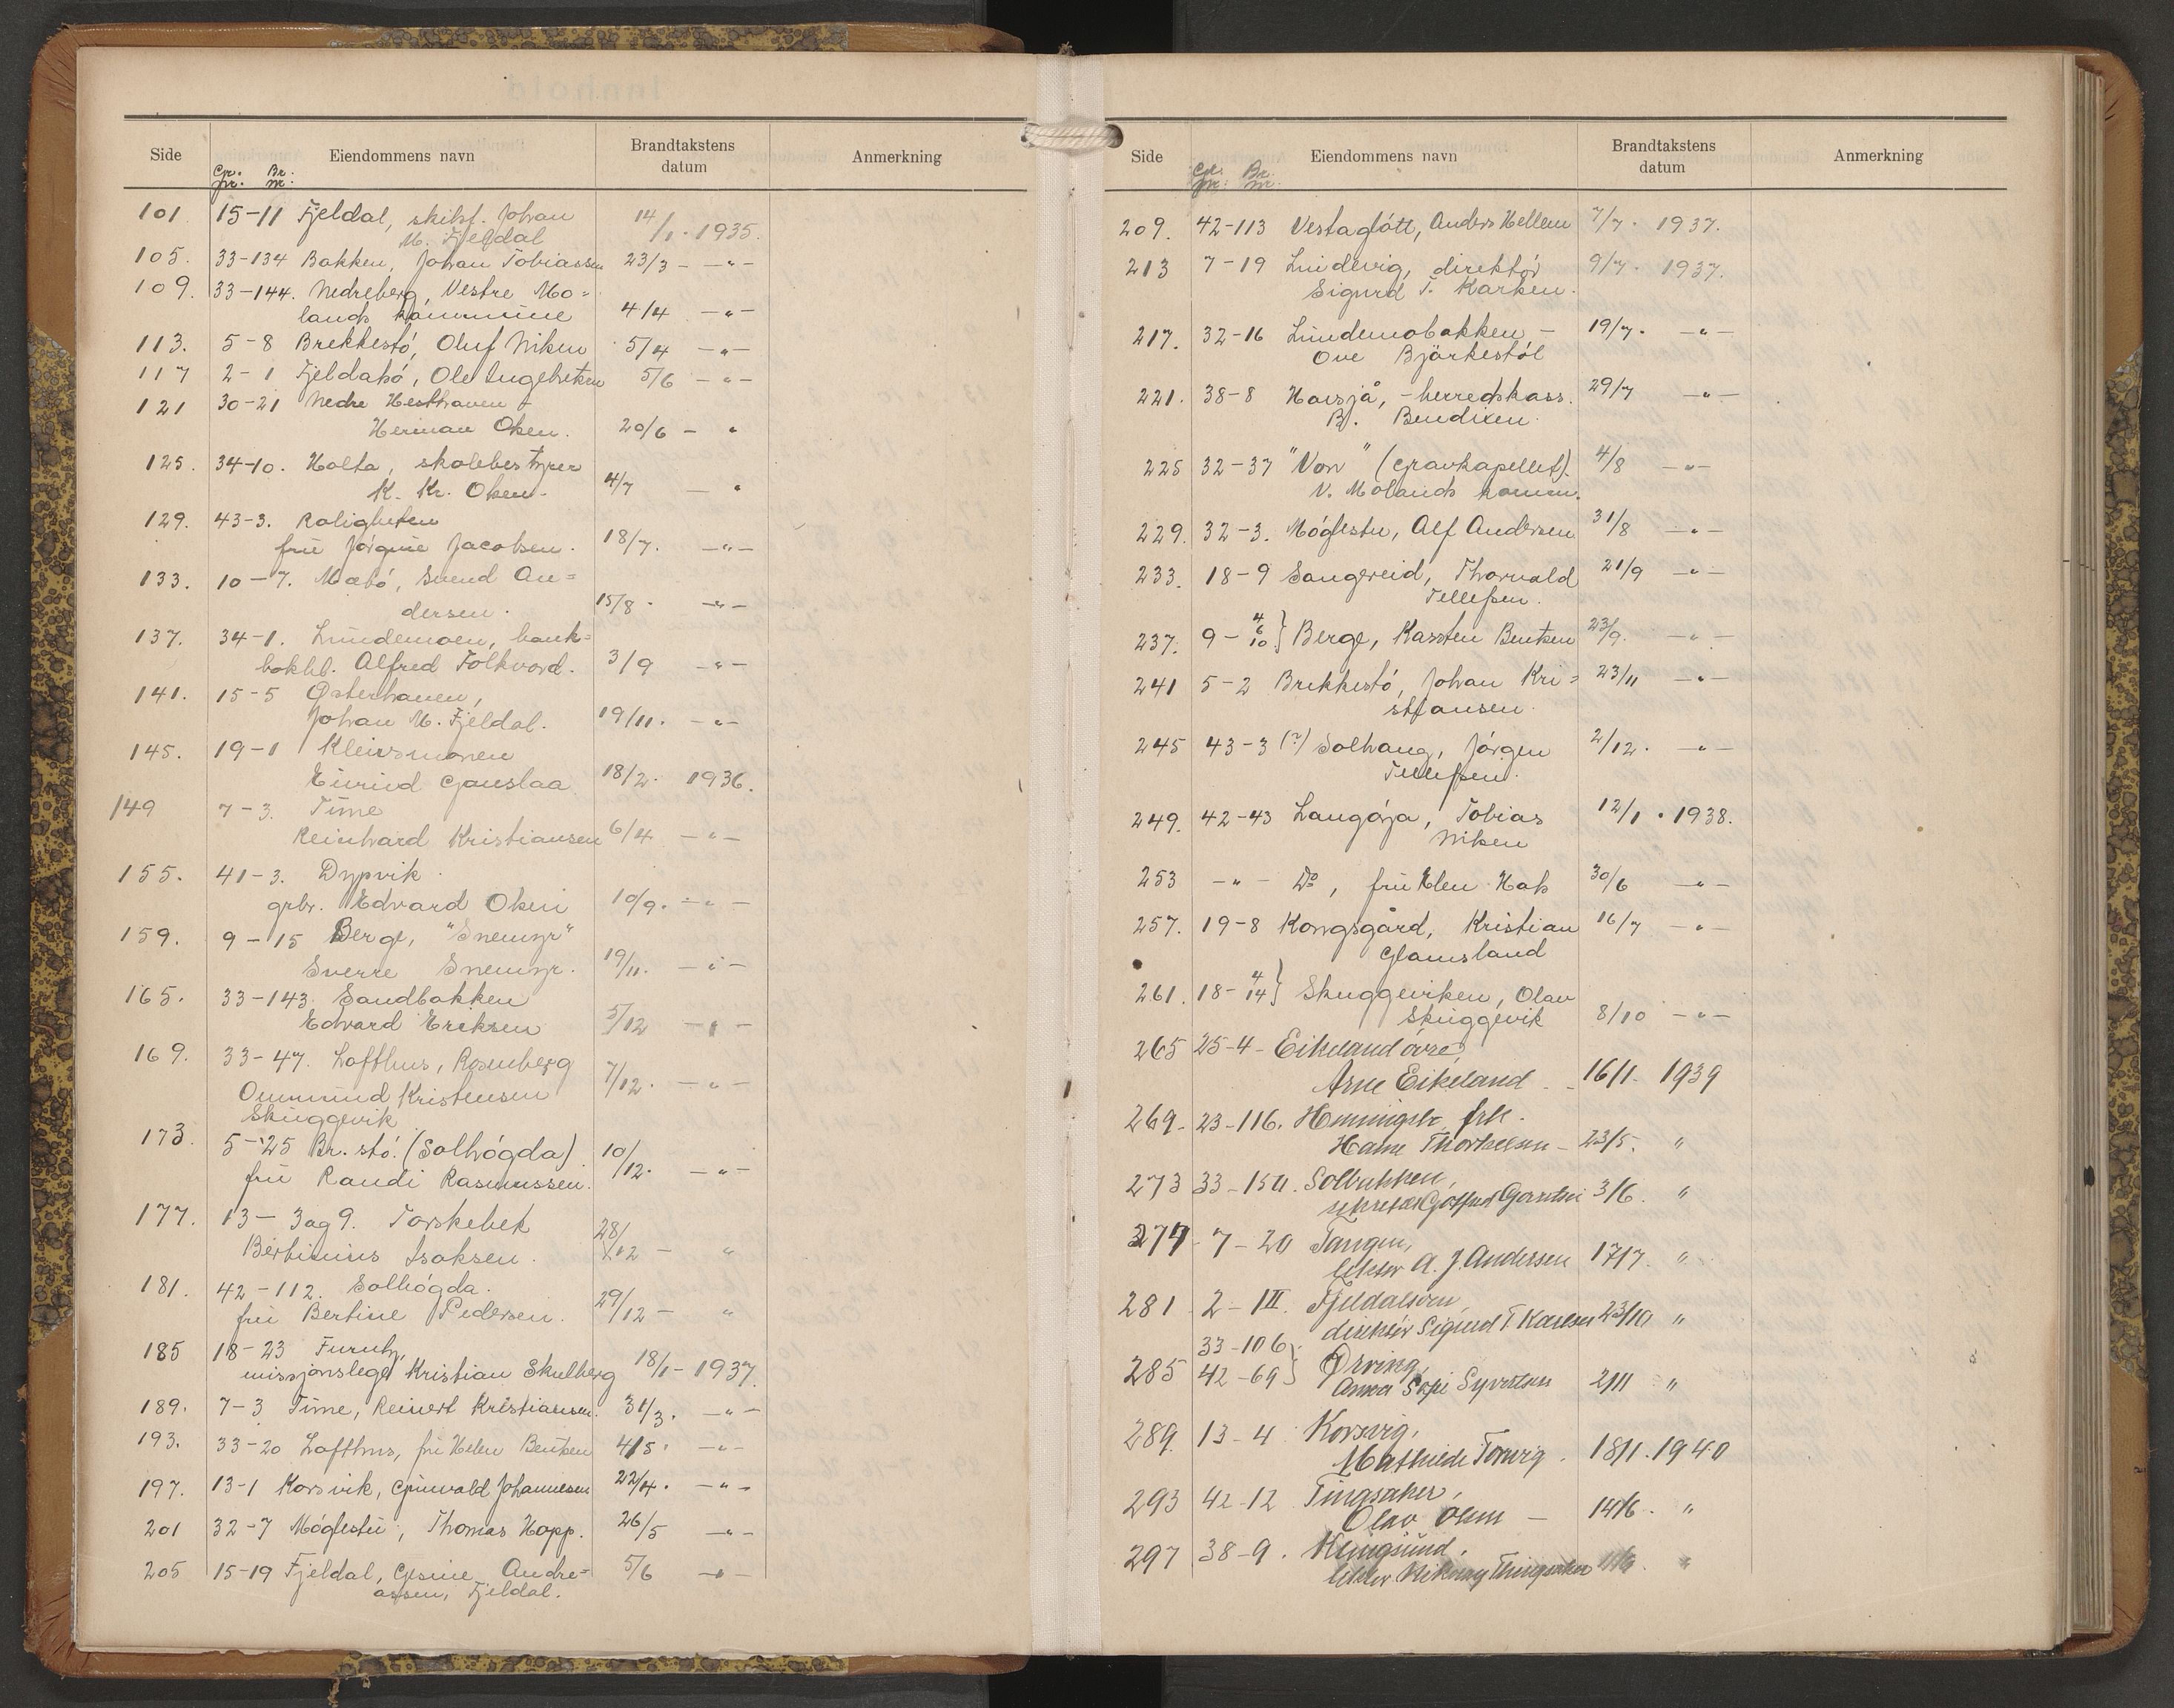 Side Eiendommens navn Brandtakstens datum Anmerkning
Gr. nr: Br. nr:
101 15-11 Fjeldal, skibsf. Johan 14/1. 1935.
M. Fjeldal
105. 33-134 Bakken, Johan Tobiassen 23/3 - -"-
109. 33-144. Nedreberg, Vestre Mo=
lands kommune 4/4 -"-
113. 5-8 Brekkestö, Oluf Nilsen 5/4 -"-
117 2-1 Fjeldalsö, Ole Ingebretsen 5/6 -"-
121 30-21 Nedre Hesthaven -
Herman Olsen. 20/6 - "
125. 34-10. Holta, skolebestyrer
K. Kr. Olsen. 4/7 - "
129. 43-3. Roligheten
frú Jörgine Jacobsen. 18/7. -"-
133. 10-7. Mæbö, Svend An=
dersen. 15/8. -"-
137. 34-1. Lindemoen, bank=
bokh. Alfred Folkvord. 3/9 -"-
141. 15-5 Østerhaven,
Johan M. Fjeldal. 19/11. -"-
145. 19-1 Kleivsmonen
Eivind Gauslaa 18/2. 1936.
149 7-3. Time
Reinhard Kristiansen 6/4 -"-
155. 41-3. Dypvik.
gbr. Edvard Olsen 10/9. -"-
159. 9-15 Berge, "Snemyr"
Sverre Snemyr. 19/11. -"-
165. 33-143. Sandbakken
Edvard Eriksen 5/12 -"-
169. 33-47. Lofthus, Rosenberg
Ommund Kristensen 7/12. -"-
Skuggevik
173. 5-25 Br. stö. (Solhögda) 10/12. -"-
frú Randi Rasmussen.
177. 13-3 og 9. Torskebek 28/12 - "
Bertinius Isaksen.
181. 42-112. Solhögda.
frú Bertine Pedersen. 29/12 - "
185 18-23 Furuly,
missjonslege Kristian Skulberg 18/1 - 1937.
189. 7-3 Time, Reinert Kristiansen. 31/3. -"-
193. 33-20 Lofthus, frú Helen Bentsen 4/5. -"-
197. 13-1 Korsvik, Grunvald Johannesen 22/4. -"-
201 32-7 Möglestú, Thomas Hopp. 26/5 -"-
205 15-19 Fjeldal, Gesine Andre= 5/6 -"-
assen, Fjeldal.
Side Eiendommens navn Brandtakstens datum Anmerkning
Gr. nr: Br. nr:
209. 42-113 Vestaglött, Anders Hellem 7/7. 1937.
213 7-19 Lindevig, direktör 9/7. 1937.
Sigurd T. Karlsen.
217. 32-16 Lindemobakken - 19/7. -"-
Ove Bjärkestöl
221. 38-8 Havsjå, - herredskass. 29/7 -"-
B. Bendixen.
225 32-37 "Von" (Gravkapellet). 4/8 -"-
V. Molands komm.
229. 32-3. Möglestu, Alf Andersen 31/8 -"-
233. 18-9 Sangereid, Thorvald 21/9 -"-
Tellefsen.
237. 9- 4 6 10} Berge, Karsten Bentsen 23/9. -"-
241 5-2 Brekkestö, Johan Kri= 23/11 -"-
stiansen.
245 43-3 (?) Solhaug, Jörgen 2/12. -"-
Tellefsen.
249. 42-43 Langörja, Tobias 12/1. 1938.
Nilsen
253 -"- Do, frú Elen Hals 30/6 -"-
257. 19-8 Kongsgård, Kristian 16/7 -"-
Glamsland
261. 18- 4 14} Skuggeviken, Olav
Skuggevik 8/10 -"-
265 25-4 - Eikeland övre,
Arne Eikeland - 16/1. 1939
269. 23-116. frk.
Hanna - 23/5. "
273 33-150. Solbakken,
3/6. "
277 7-20 Tangen,
lektor A. J. Andersen 17/7. "
281 2-III. Fjeldalsöen,
direktör Sigurd T. Karlsen 23/10 "
33-106}
285 42-69} Örving,
Anna Syvertsen 2/11 "
289. 13-4 Korsvig,
Mathilde 18/1. 1940
293 42-12 Tingsaker,
Olav Olsen - 14/6. "
297 38-9. Kringsund.
lektor Tingsaker "